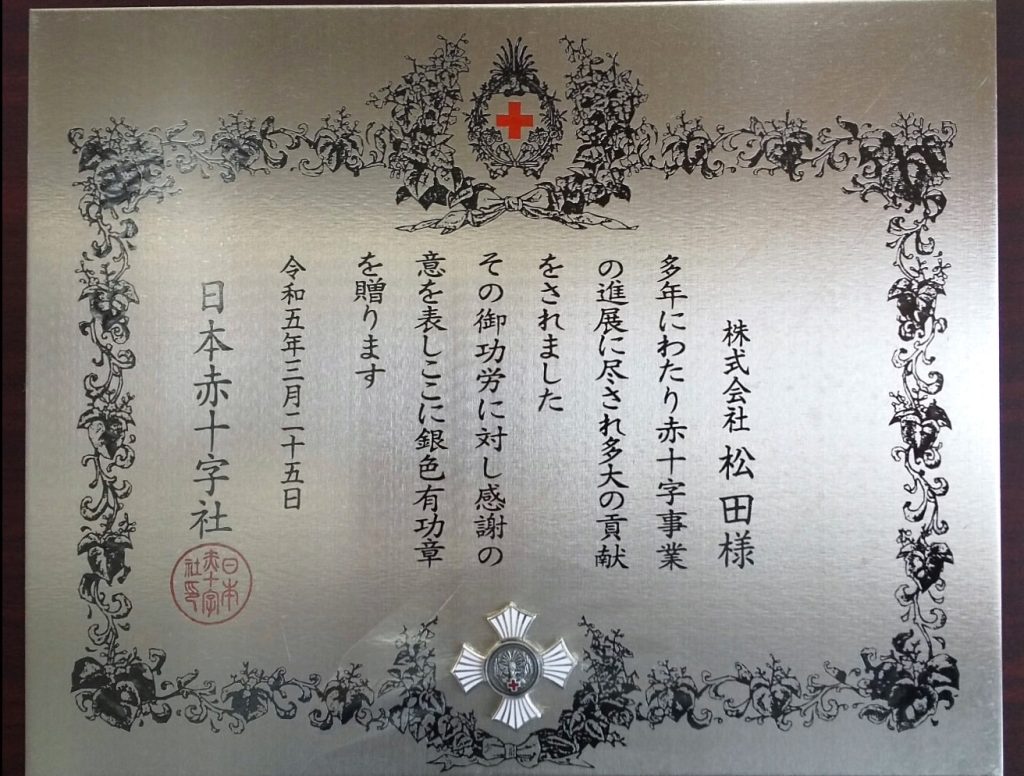 株式会社 松田様
多年にわたり赤十字事業
の進展に尽され多大の貢献
をされました
その御功労に対し感謝の
意を表しここに銀色有功章
を贈ります
令和五年三月二十五日
日本赤十字社
日本
赤十字
社印